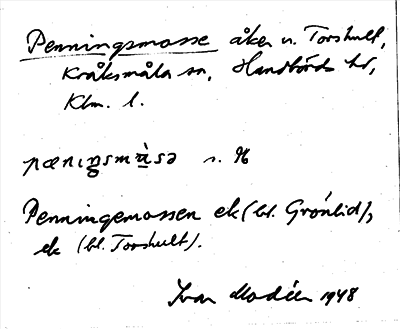 Penningsmosse åker n. Torshult,
Kråksmåla sn, Handbörds hd,
Klm. l.
pæniŋsmὰsə s. 96
Penningemossen ek (bl. Grönlid),
ek (bl. Torshult).
Ivar Modéer 1948